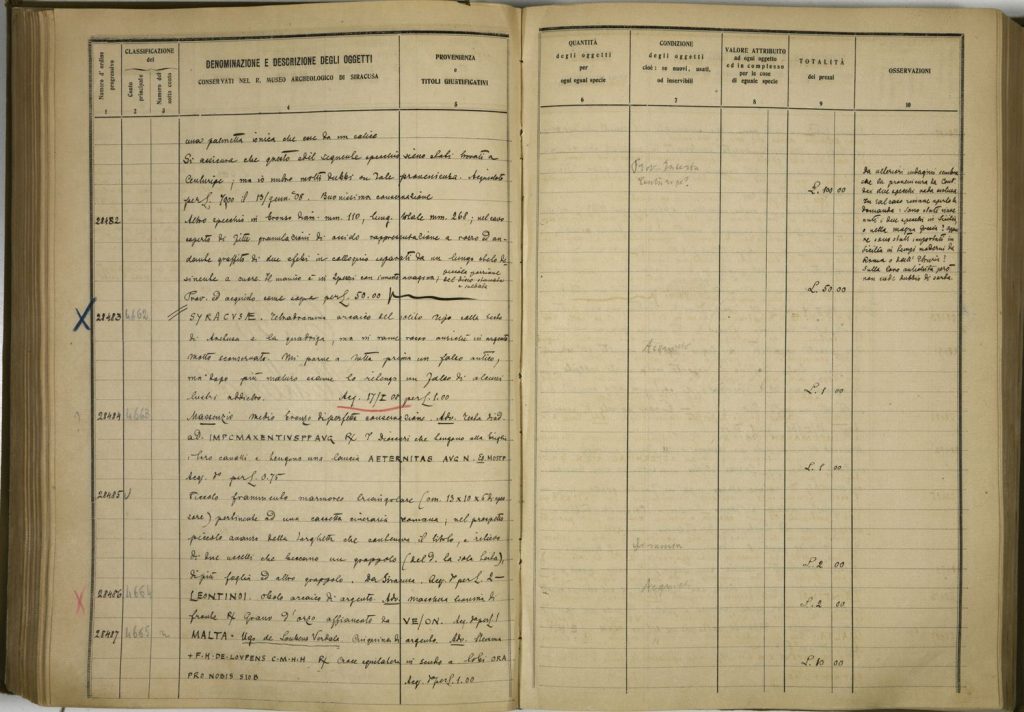 Numero d'ordine progressivo
CLASSIFICAZIONE
del
Conto principale
Numero del sotto conto
DENOMINAZIONE E DESCRIZIONE DEGLI OGGETTI
CONSERVATI NEL R. MUSEO ARCHEOLOGICO DI SIRACUSA
PROVENIENZA
E
TITOLI GIUSTIFICATIVI
1 2 3 4 5
una palmetta ionica che esce da un calice
Si assicura che questo ed il seguente specchio siano stati trovati a
Centuripe; ma io nutro molti dubbi su tale provenienza. Acquistato
per £. 100 il 13/genn. 08. Buonissima conservazione
28482
Altro specchio in bronzo diam. mm. 110, lung. totale mm. 268; nel
coperto di fitte granulazioni di ossido rappresentazione a
graffite di due efebi in colloquio separati da un lungo stelo
a cuore. Il manico è in
piccola porzione
del disco
Prov. ed acquisto come sopra per £. 50.00
28483 4662
SYRACUSÆ. Tetradramma arcaico del solito tipo colla testa
di Aretusa e la quadriga, ma in rame rosso ansichè in argento
molto sconservato. Mi parve a tutta prima un falso antico,
ma dopo più maturo esame lo ritengo un falso di alcuni
lustri addietro. Acq. 17/I 08 per £. 1.00
28484 4663
Massenzio medio bronzo di perfetta conservazione. Adv. testa
a D. IMPCMAXENTIVSPFAVG Rx I Dioscuri che tengono alla briglia
i loro cavalli e tengono una lancia AETERNITAS AVG N. Es MOSTP
Acq. per £. 0.75
28485
Piccolo frammento marmoreo triangolare (cm. 13 x 10 x 5 di
) pertinente ad una cassetta cineraria romana; nel prospetto
piccolo avanzo della targhetta che conteneva il titolo, a rilievo
di due uccelli che beccano un grappolo (del D. la sola testa),
di più foglia ed altro grappolo. Da Siracusa. Acq. per £. 2-
28486 4664
LEONTINOI. Obolo arcaico di argento. Adv. maschera leonina di
fronte Rx Grano d'orzo affiancato da VE/ON. Acq. per £ 1
28487 4665
MALTA - Ugo de Loubens Verdala di argento. Adv. Stemma
+F·H·DE·LOVPENS C·M·H·H. Rx Croce equilatera in scudo a lobi ORA
PRO NOBIS Acq. per £. 1.00
QUANTITÀ
degli oggetti
per
ogni egual specie
CONDIZIONE
degli oggetti
cioè: se nuovi, usati,
od inservibili
VALORE ATTRIBUITO
ad ogni oggetto
od in complesso
per le cose
di eguale specie
TOTALITÀ
dei prezzi
OSSERVAZIONI
6 7 8 9 10
Prov. Incerta
Centuripe?
£. 100 00
Da ulteriori indagini sembra
che la provenienza da
dei due specchi vada esclusa.
In tal caso rimane aperta la
domanda: sono stati
i due specchi in Sicilia
o nella magna Grecia?
sono stati importati in
Sicilia in tempi moderni da
Roma o dall' Etruria?
Sulla loro autenticità però
non cade dubbio di sorta.
£. 50 00
£. 1 00
£. 1 00
£. 2 00
£. 2 00
£. 10 00